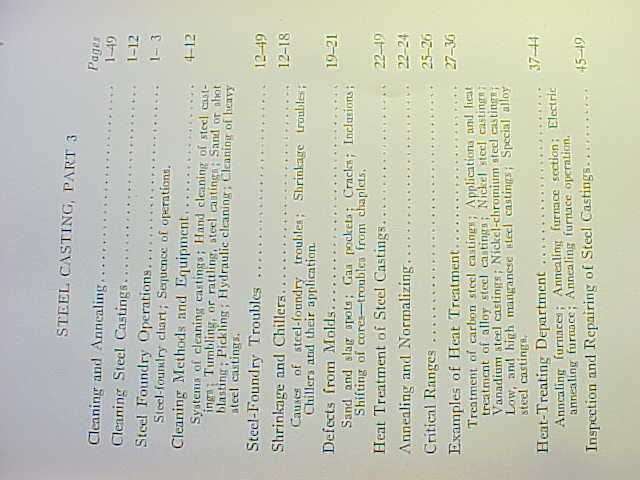 STEEL CASTING, PART 3
Pages
Cleaning and Annealing 1-49
Cleaning Steel Castings 1-12
Steel Foundry Operations 1- 3
Steel-foundry chart; Sequence of operations.
Cleaning Methods and Equipment 4-12
Systems of cleaning castings; Hand cleaning of steel cast-
ings; Tumbling, or rattling, steel castings; Sand or shot
blasting; Pickling; Hydraulic cleaning; Cleaning of heavy
steel castings.
Steel-Foundry Troubles 12-49
Shrinkage and Chillers 12-18
Causes of steel-foundry troubles; Shrinkage troubles;
Chillers and their application.
Defects from Molds 19-21
Sand and slag spots; Gas pockets; Cracks; Inclusions;
Shifting of cores—troubles from chaplets.
Heat Treatment of Steel Castings 22-49
Annealing and Normalizing 22-24
Critical Ranges 25-26
Examples of Heat Treatment 27-36
Treatment of carbon steel castings; Applications and heat
treatment of alloy steel castings; Nickel steel castings;
Vanadium steel castings; Nickel-chromium steel castings;
Low, and high manganese steel castings; Special alloy
steel castings.
Heat-Treating Department 37-44
Annealing furnaces; Annealing furnace section; Electric
annealing furnace; Annealing furnace operation.
Inspection and Repairing of Steel Castings 45-49